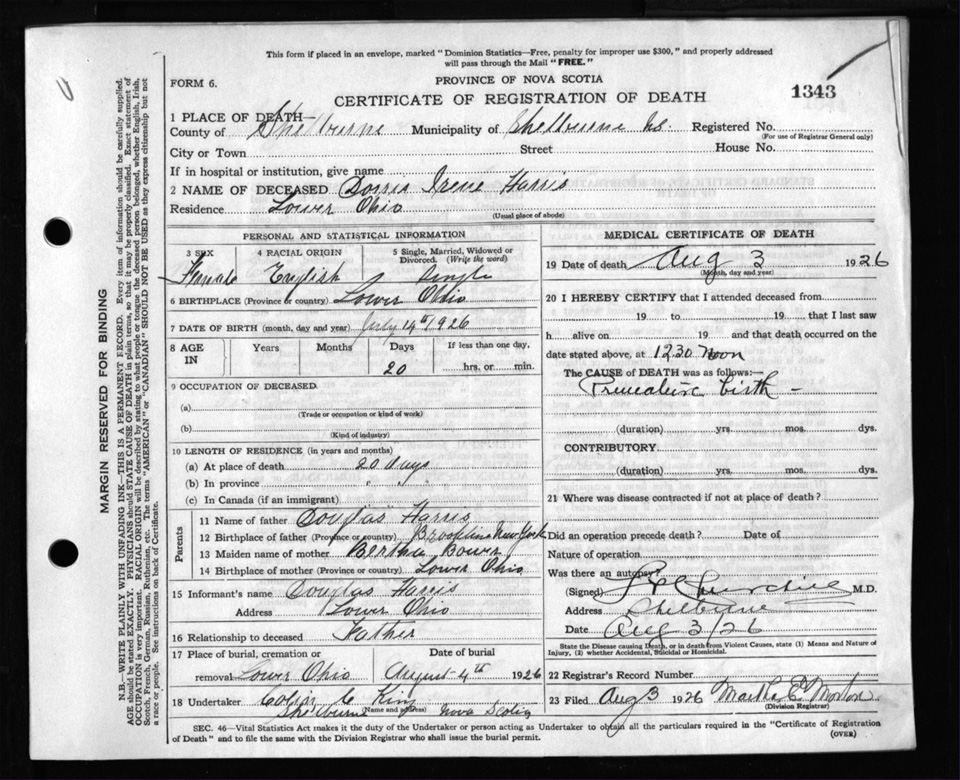 This form if placed in an envelope, marked "Dominion Statistics—Free, penalty for improper use $300," and properly addressed
will pass through the Mail "FREE."
FORM 6.
PROVINCE OF NOVA SCOTIA
CERTIFICATE OF REGISTRATION OF DEATH
1343
1 PLACE OF DEATH—
County of Shelburne Municipality of Shelburne NS. Registered No.
(For use of Registrar General only)
City or Town Street House No.
If in hospital or institution, give name
2 NAME OF DECEASED Dorris Irene Harris
Residence Lower Ohio
(Usual place of abode)
PERSONAL AND STATISTICAL INFORMATION
3 SEX 4 RACIAL ORIGIN 5 Single, Married, Widowed or Divorced. (Write the word)
Female English Single
6 BIRTHPLACE (Province or country) Lower Ohio
7 DATE OF BIRTH (month, day and year) July 14th 1926
8 AGE IN Years Months Days If less than one day,
20 hrs. or min.
9 OCCUPATION OF DECEASED.
(a)
(Trade or occupation or kind of work)
(b)
(Kind of industry)
10 LENGTH OF RESIDENCE (in years and months)
(a) At place of death 20 days
(b) In province " "
(c) In Canada (if an immigrant)
Parents
11 Name of father Douglas Harris
12 Birthplace of father (Province or country) Brooklin New York
13 Maiden name of mother Bertha Bower
14 Birthplace of mother (Province or country) Lower Ohio
15 Informant's name Douglas Harris
Address Lower Ohio
16 Relationship to deceased Father
17 Place of burial, cremation or removal Date of burial
Lower Ohio August 4th 1926
18 Undertaker Colin C King
(Name and address)
Shelburne Nova Scotia
MEDICAL CERTIFICATE OF DEATH
19 Date of death Aug 3 1926
(Month, day and year)
20 I HEREBY CERTIFY that I attended deceased from
19 to 19 that I last saw
h alive on 19 and that death occurred on the
date stated above, at 12.30 Noon
The CAUSE of DEATH was as follows:—
Premature birth —
(duration) yrs. mos. dys.
CONTRIBUTORY
(duration) yrs. mos. dys.
21 Where was disease contracted if not at place of death?
Did an operation precede death? Date of
Nature of operation
Was there an autopsy?
(Signed) M.D.
Address Shelburne
Date Aug 3/26
State the Disease causing Death, or in death from Violent Causes, state (1) Means and Nature of
Injury, (2) whether Accidental, Suicidal or Homicidal.
22 Registrar's Record Number
23 Filed Aug 3 1926 Martha E. Morton
(Division Registrar)
SEC. 46—Vital Statistics Act makes it the duty of the Undertaker or person acting as Undertaker to obtain all the particulars required in the "Certificate of Registration
of Death" and to file the same with the Division Registrar who shall issue the burial permit.
(OVER)
MARGIN RESERVED FOR BINDING
N.B.—WRITE PLAINLY WITH UNFADING INK—THIS IS A PERMANENT RECORD. Every item of information should be carefully supplied.
AGE should be stated EXACTLY. PHYSICIANS should STATE CAUSE OF DEATH in plain terms, so that it may be properly classified. Exact statement of
OCCUPATION is very important. RACIAL ORIGIN will be described by stating to what people or tongue the deceased person belonged, whether English, Irish,
Scotch, French, German, Russian, Ruthenian, etc. The terms "AMERICAN" or "CANADIAN" SHOULD NOT BE USED as they express citizenship but not
a race or people. See instructions on back of Certificate.